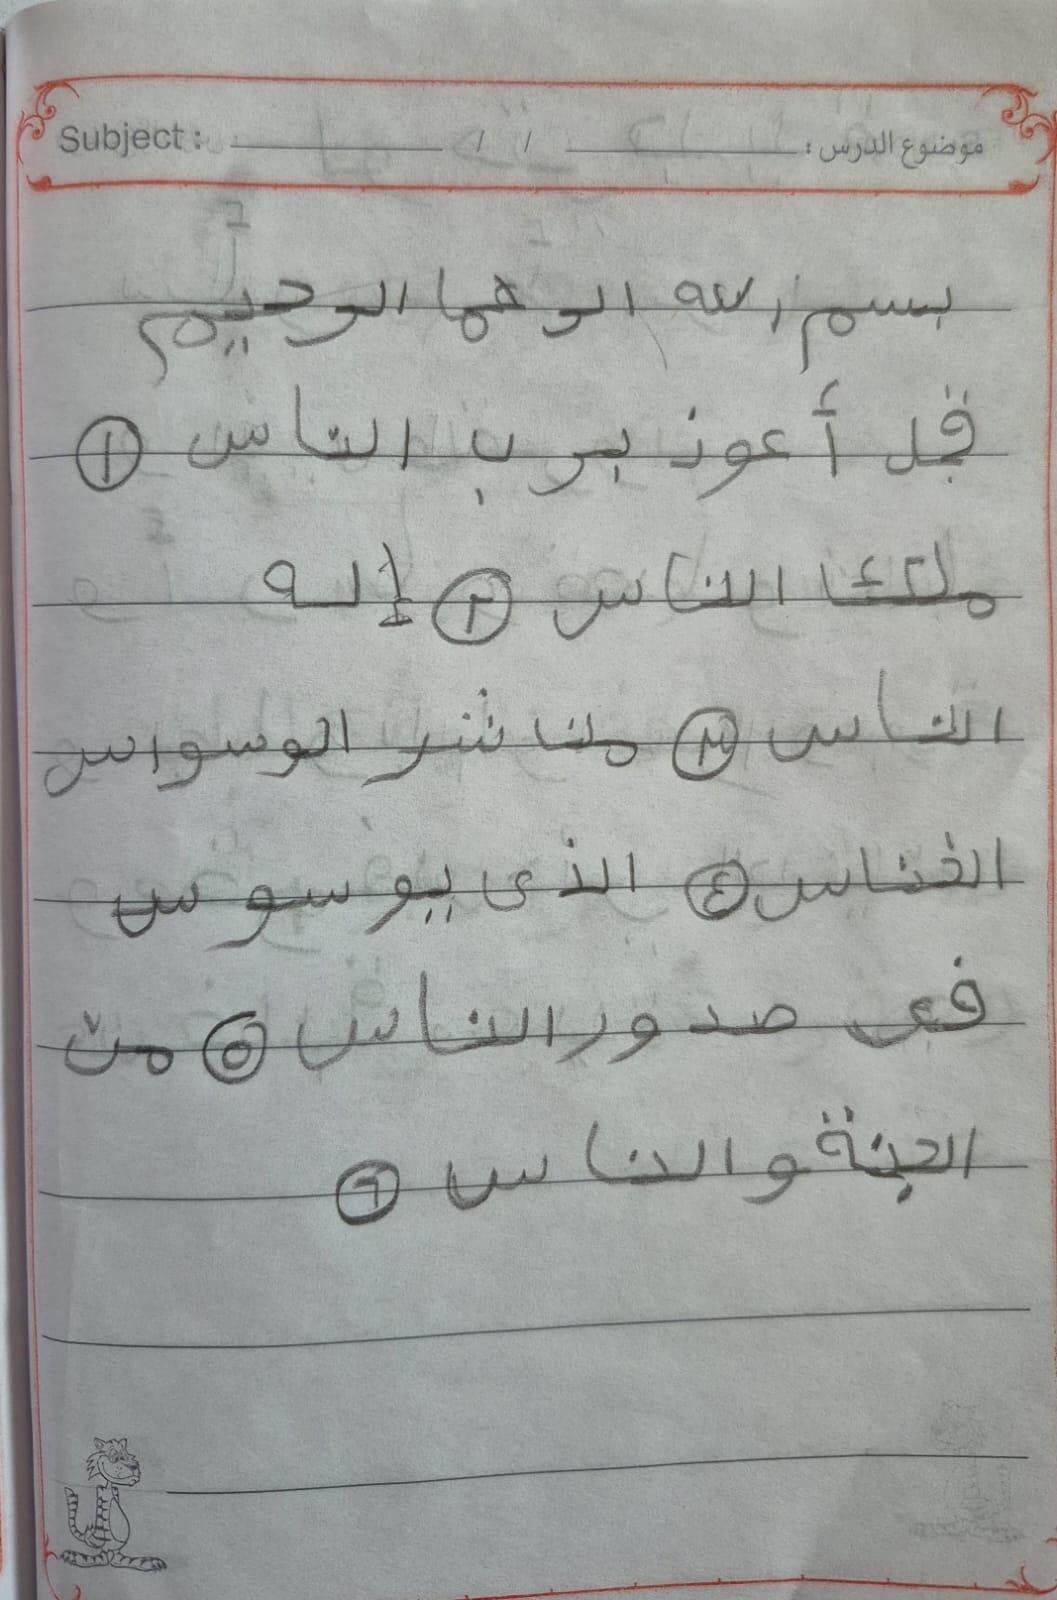 Subject: / / موضوع الدرس:
بسم الله الرحما الرحيم
قل أعوذ برب الناس ١
ملكا الناس ٢ إله
الناس ٣ منا شر الوسواس
الخناس ٤ الذى يوسوس
فى صدور الناس ٥ من
الجنة والناس ٦